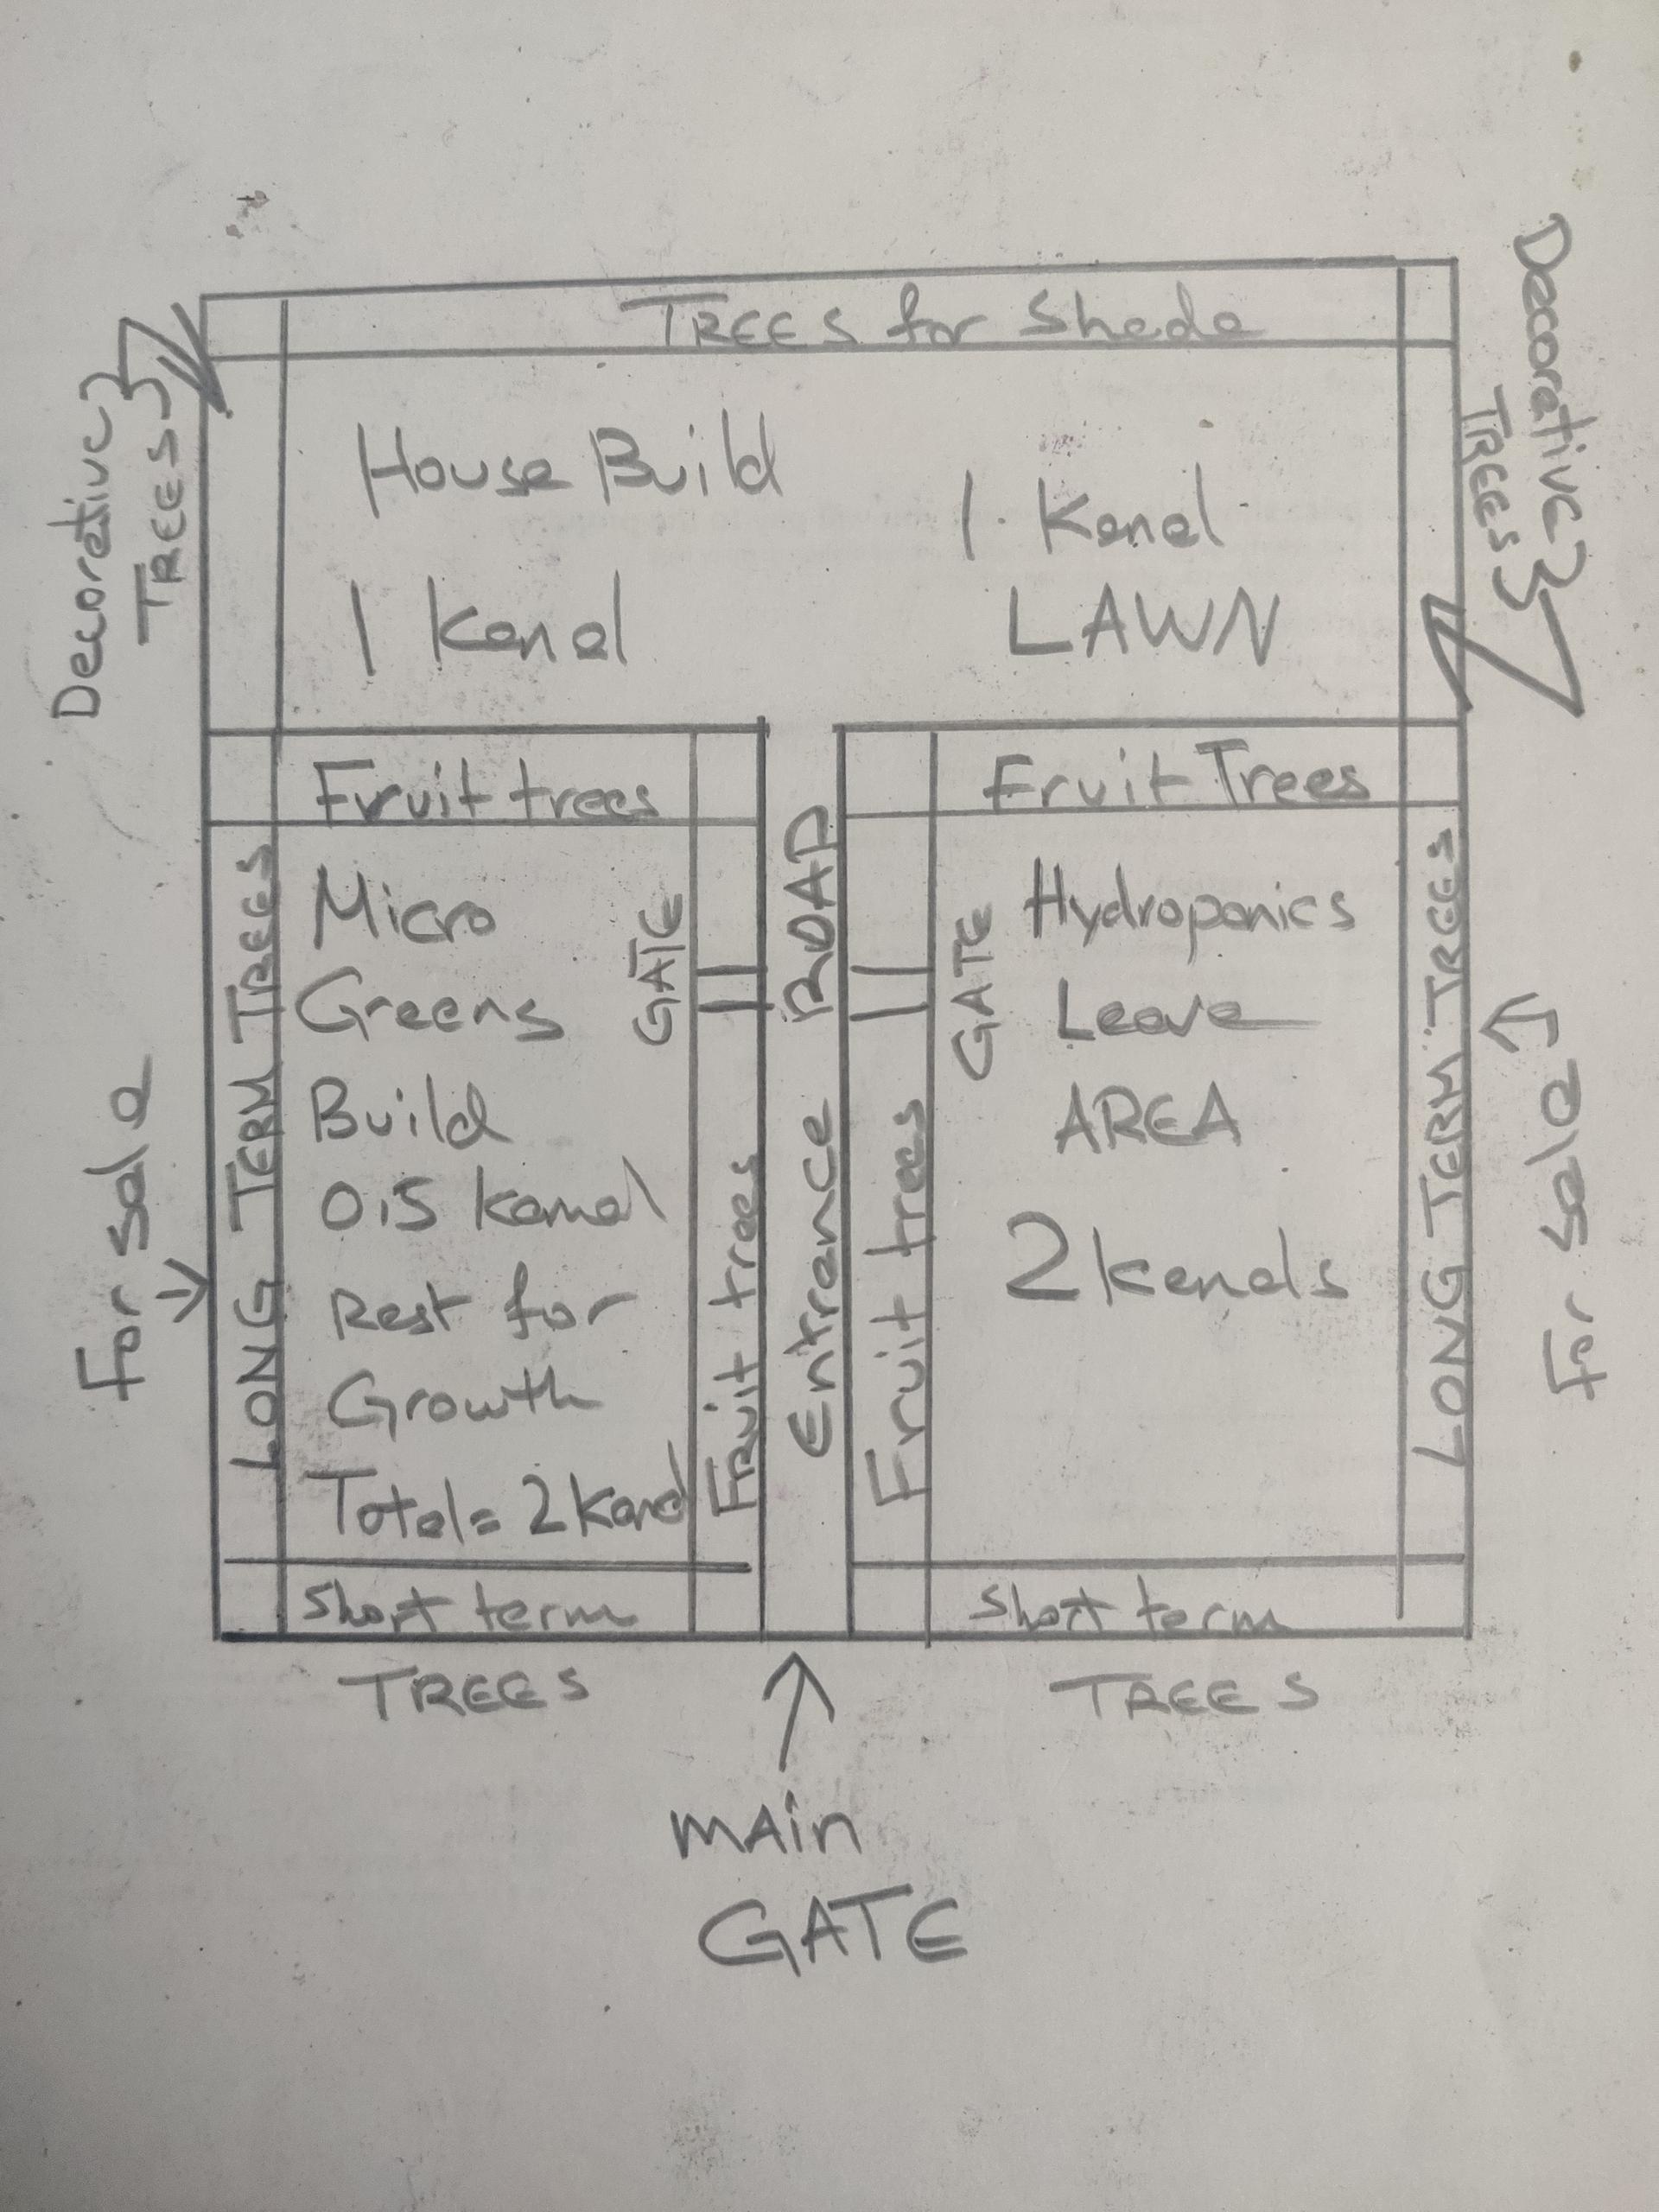 TREES for Shade
Decorative
TREES
House Build
1 Kanal
1. Kanal
LAWN
Decorative
TREES
Fruit trees
Fruit Trees
LONG TERM TREES
For sale
Micro
Greens
Build
0.5 Kanal
Rest for
Growth
Total = 2 Kanal
GATE
Fruit trees
Entrance ROAD
Fruit trees
GATE
Hydroponics
Leave
AREA
2 Kanals
LONG TERM TREES
For sale
Short term
TREES
Short term
TREES
MAin
GATE